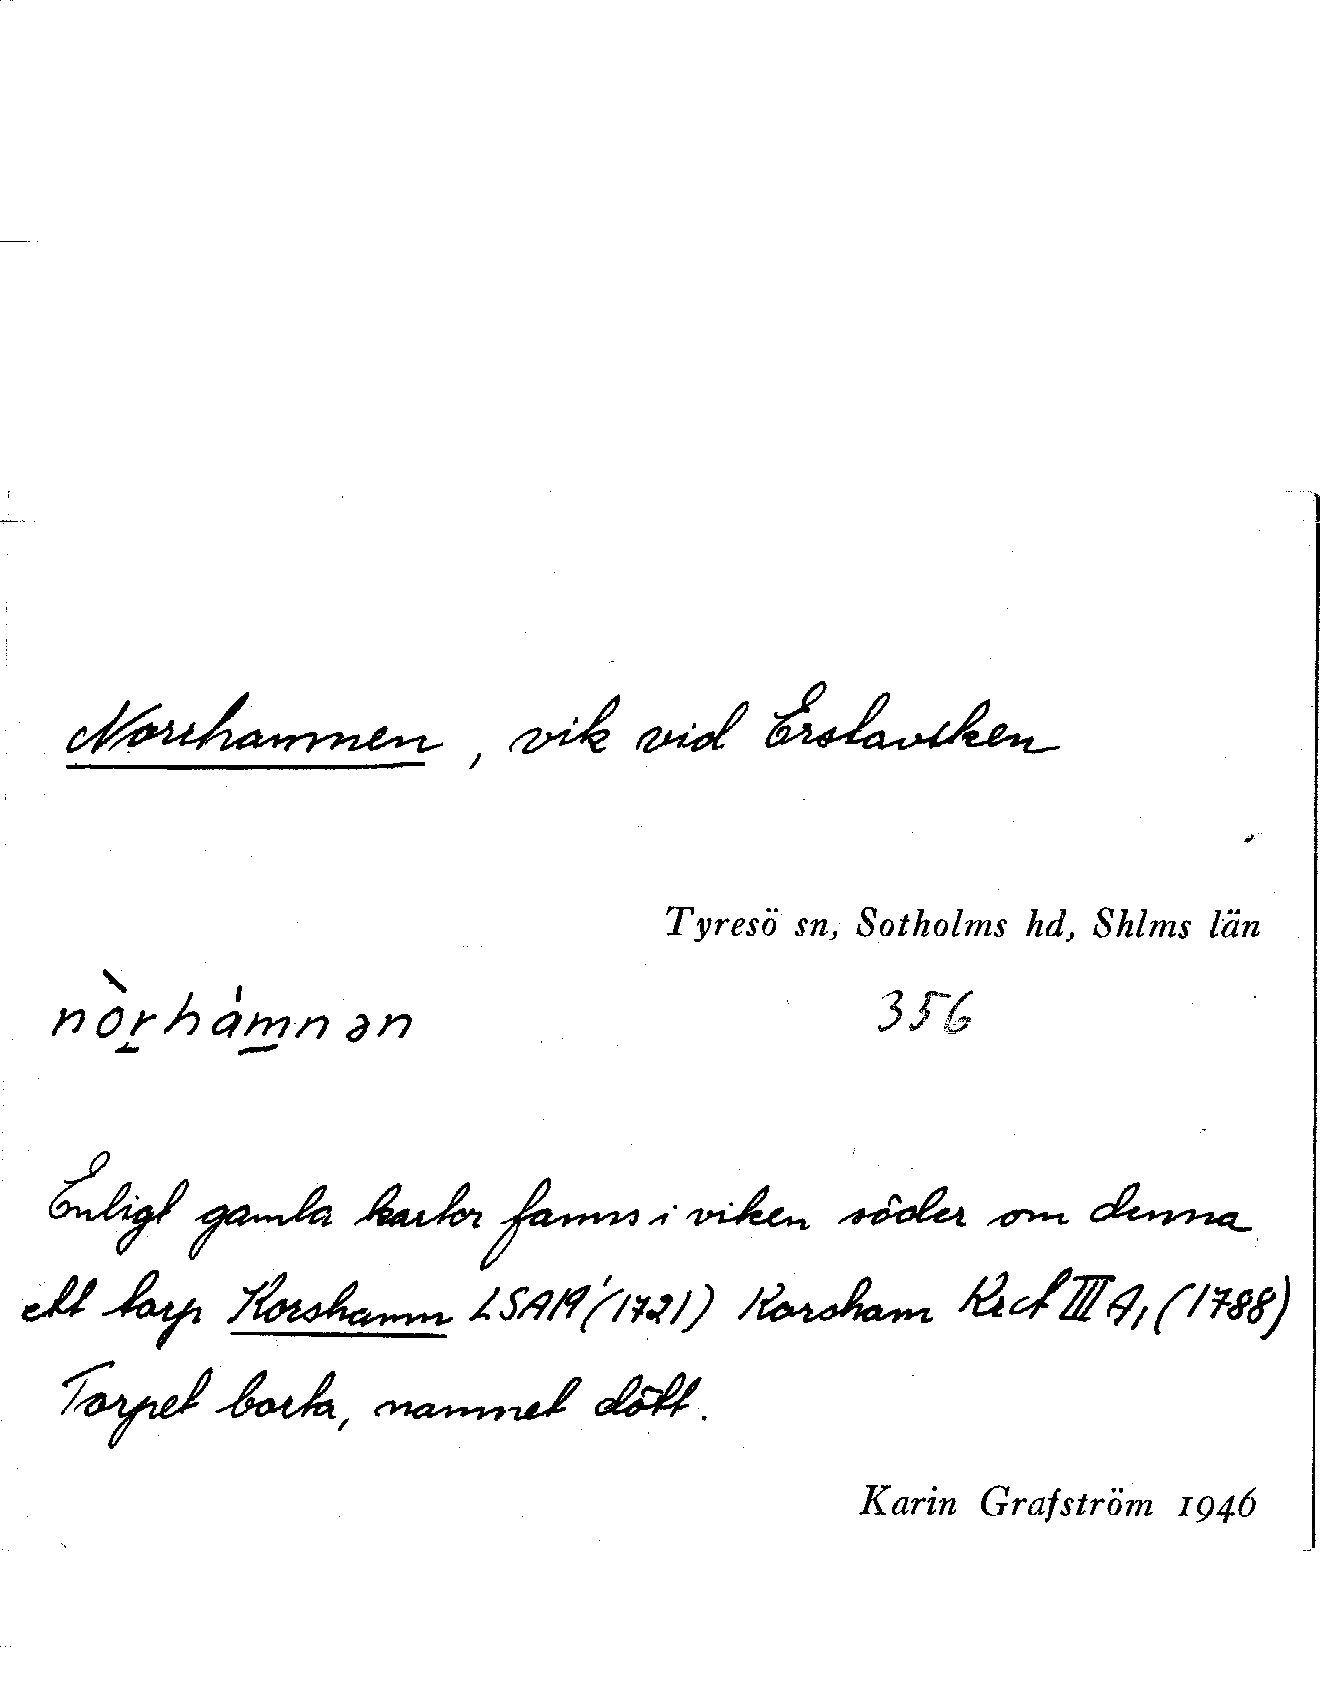 Norrhamnen, vik vid Erstaviken
Tyresö sn, Sotholms hd, Shlms län
nòr̲hám̲nən
356
Enligt gamla kartor fanns i viken söder om denna
ett torp Korshamn LSA 19 (1721) Korsham Krct III A, (1788)
Torpet borta, namnet dött.
Karin Grafström 1946